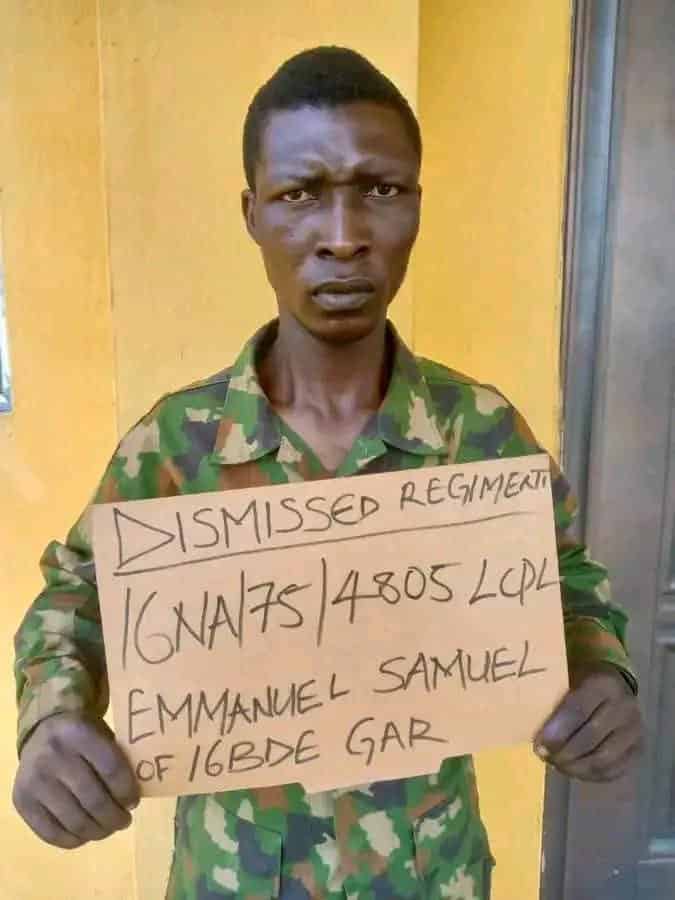 DISMISSED REGIMENT
16NA/75/4805 LCPL
EMMANUEL SAMUEL
OF 16BDE GAR